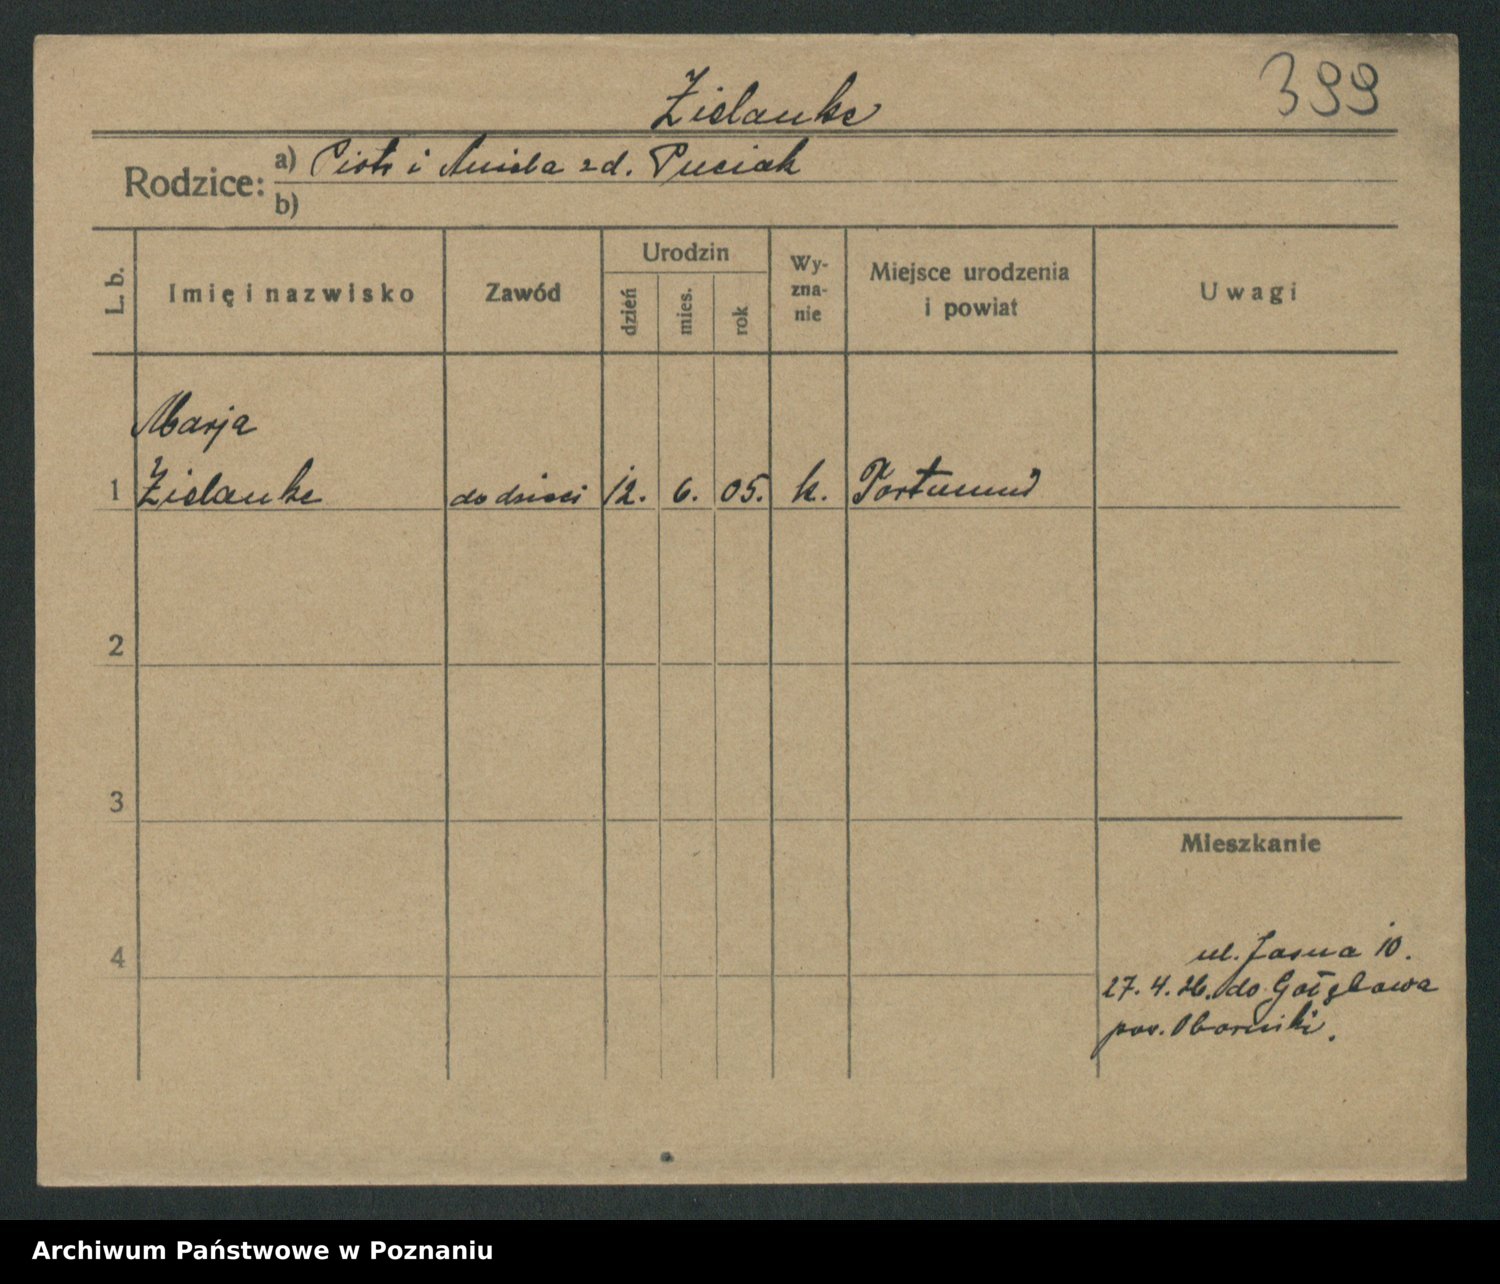 399
Zielanke
Rodzice: a) Piotr i Aniela zd. Puciak
b)
L. b. Imię i nazwisko Zawód Urodzin dzień mies. rok Wyznanie Miejsce urodzenia i powiat Uwagi
Marja
1 Zielanke do dzieci 12. 6. 05. k. Dortmund
2
3
Mieszkanie
4
ul. Jasna 10.
27. 4. 26. do
pow. Oborniki.
Archiwum Państwowe w Poznaniu